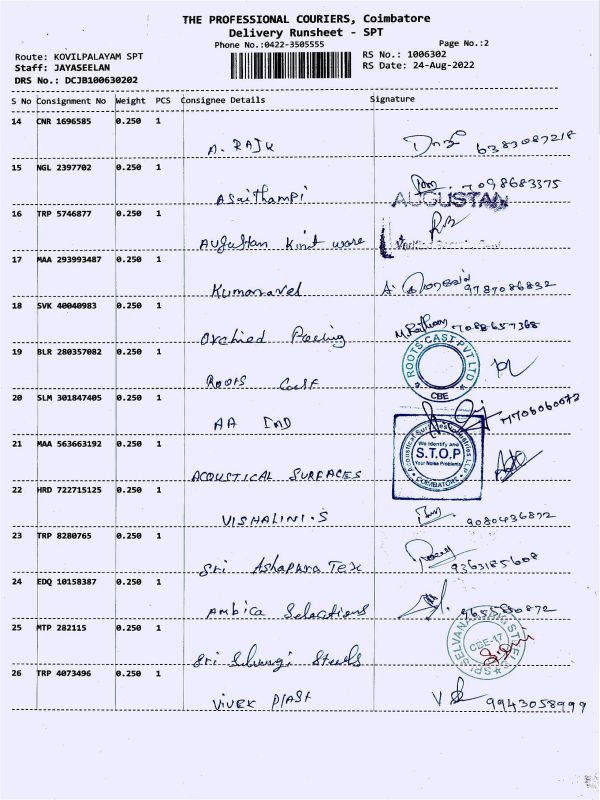 THE PROFESSIONAL COURIERS, Coimbatore
Delivery Runsheet - SPT
Phone No.:0422-3505555
Page No.:2
Route: KOVILPALAYAM SPT
RS No.: 1006302
Staff: JAYASEELAN
RS Date: 24-Aug-2022
DRS No.: DCJB100630202
S No Consignment No Weight PCS Consignee Details Signature
14 CNR 1696585 0.250 1
A. RAJU 6383087218
15 NGL 2397702 0.250 1
Asaithampi 7098683375
AUGUSTAN
16 TRP 5746877 0.250 1
Augustan Knit ware
17 MAA 293993487 0.250 1
Kumaravel 9787086832
18 SVK 40040983 0.250 1
Orchied 7088657368
19 BLR 280357082 0.250 1
Roots Cast ROOTS CAST PVT LTD
CBE
20 SLM 301847405 0.250 1
AA IND
21 MAA 563663192 0.250 1
Acoustical Surfaces Industries LLP
We Identify and
S.T.O.P
Your Noise Problems
COIMBATORE
ACOUSTICAL SURFACES
22 HRD 722715125 0.250 1
VISHALINI.S 9080436872
23 TRP 8280765 0.250 1
Sri Ashapura Tex 9363185608
24 EDQ 10158387 0.250 1
Ambica Selections
25 MTP 282115 0.250 1
CBE-17
Sri Steels
26 TRP 4073496 0.250 1
Vivek Plast 9943058999